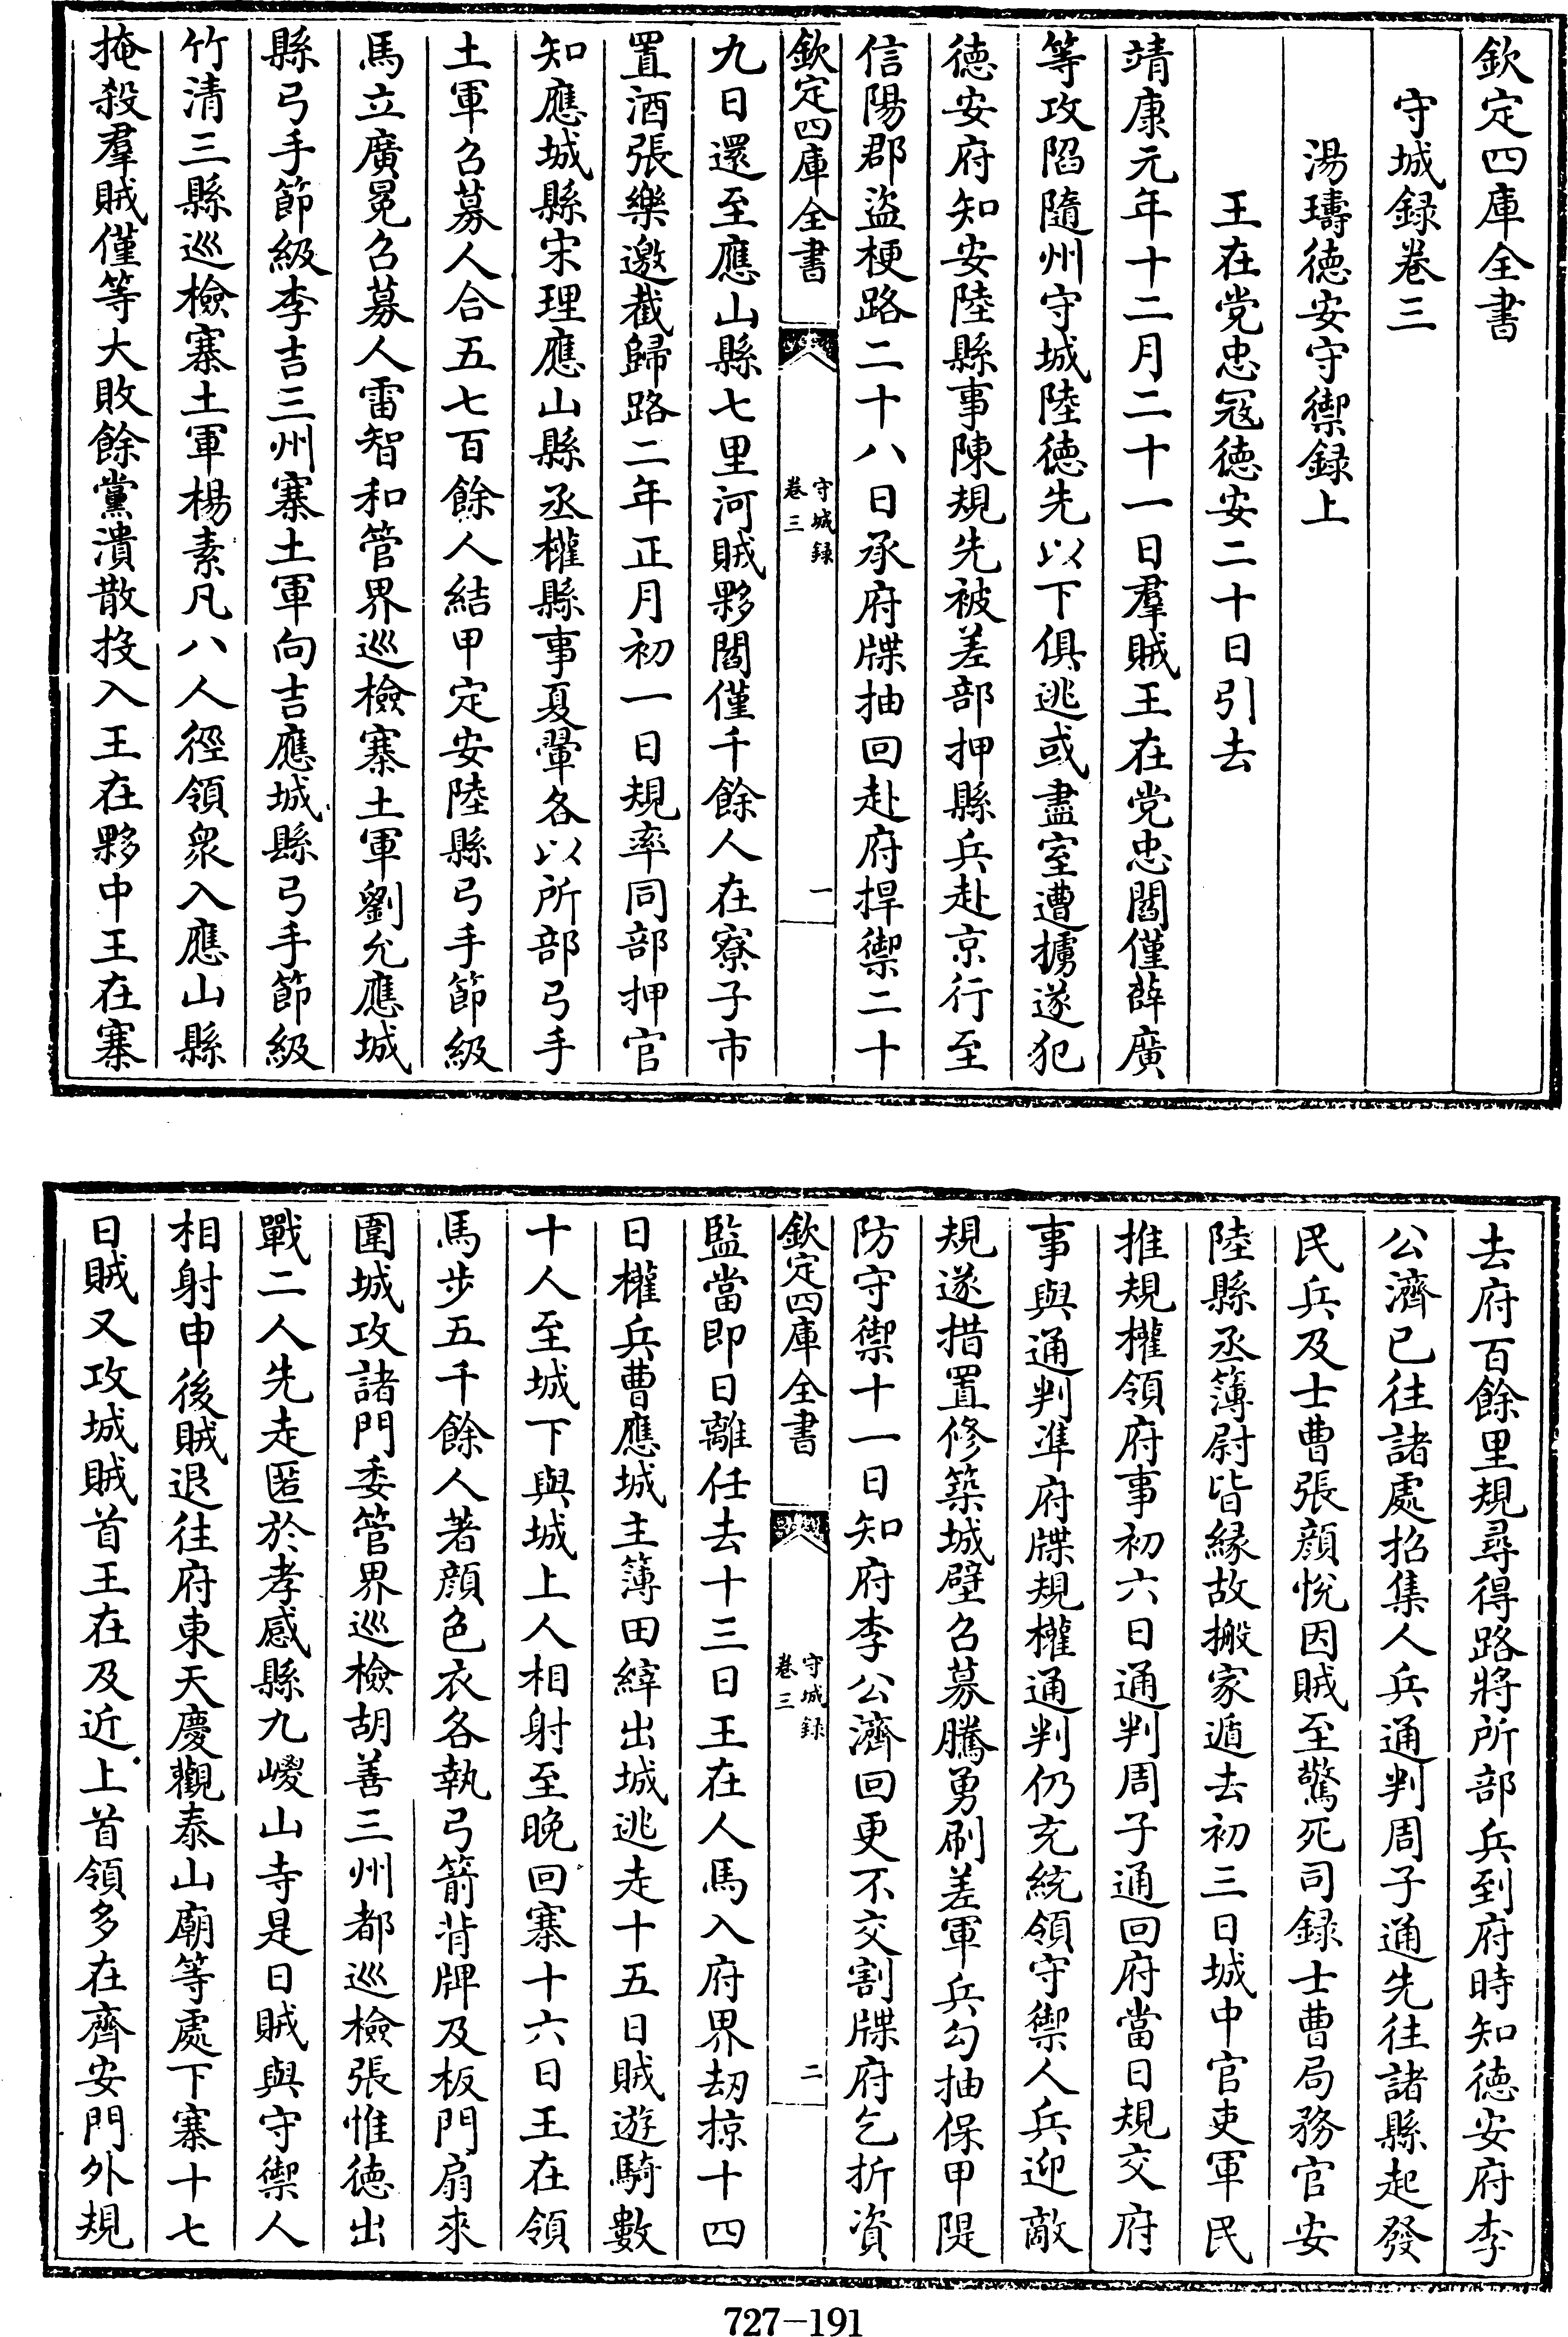 欽定四庫全書
守城録卷三
湯璹徳安守禦録上
王在党忠冦徳安二十日引去
靖康元年十二月二十一日羣賊王在党忠閻僅薛廣
等攻陷隨州守城陸徳先以下俱逃或盡室遭擄遂犯
徳安府知安陸縣事陳規先被差部押縣兵赴京行至
信陽郡盜梗路二十八日承府牒抽回赴府捍禦二十
欽定四庫全書
守城録
卷三
一
九日還至應山縣七里河賊夥閻僅千餘人在寮子市
置酒張樂邀截歸路二年正月初一日規率同部押官
知應城縣宋理應山縣丞權縣事夏翬各以所部弓手
土軍召募人合五七百餘人結甲定安陸縣弓手節級
馬立廣冕召募人雷智和管界巡檢寨土軍劉允應城
縣弓手節級李吉三州寨土軍向吉應城縣弓手節級
竹清三縣巡檢寨土軍楊素凡八人徑領衆入應山縣
掩殺羣賊僅等大敗餘黨潰散投入王在夥中王在寨
去府百餘里規尋得路將所部兵到府時知徳安府李
公濟已往諸處招集人兵通判周子通先往諸縣起發
民兵及士曹張顔恱因賊至驚死司録士曹局務官安
陸縣丞簿尉皆縁故搬家遁去初三日城中官吏軍民
推規權領府事初六日通判周子通回府當日規交府
事與通判準府牒規權通判仍充統領守禦人兵迎敵
規遂措置修築城壁召募騰勇刷差軍兵勾抽保甲隄
防守禦十一日知府李公濟回更不交割牒府乞折資
欽定四庫全書
守城録
卷三
二
監當即日離任去十三日王在人馬入府界刼掠十四
日權兵曹應城主簿田縡出城逃走十五日賊遊騎數
十人至城下與城上人相射至晚回寨十六日王在領
馬步五千餘人著顔色衣各執弓箭背牌及板門扇來
圍城攻諸門委管界巡檢胡善三州都巡檢張惟徳出
戰二人先走匿於孝感縣九嵕山寺是日賊與守禦人
相射申後賊退往府東天慶觀泰山廟等處下寨十七
日賊又攻城賊首王在及近上首領多在齊安門外規
727-191